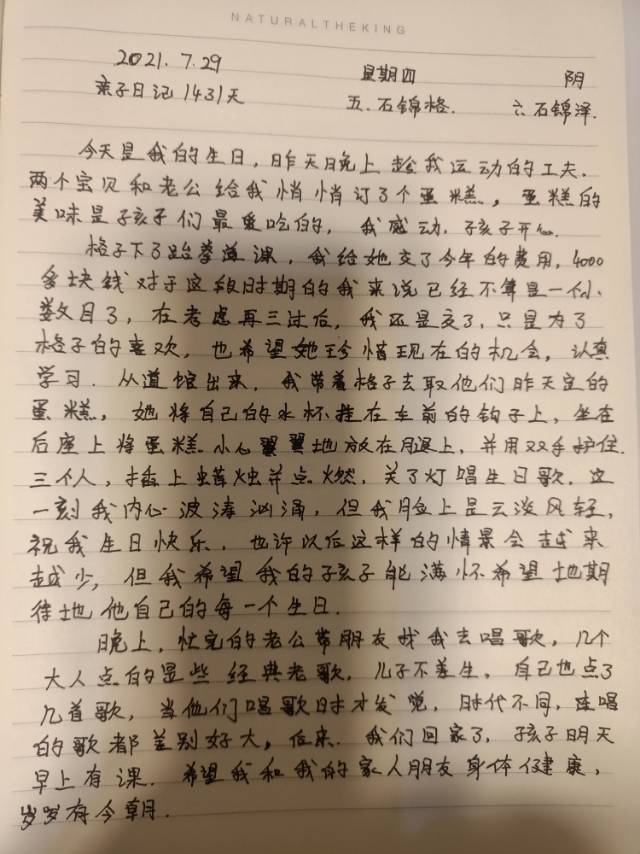 NATURALTHEKING
2021.7.29 星期四 阴
亲子日记1431天 五.石锦格. 六石锦泽.
今天是我的生日,昨天晚上趁我运动的工夫.
两个宝贝和老公给我悄悄订了个蛋糕,蛋糕的
美味是孩子们最爱吃的,我感动,孩子开心.
格子下了跆拳道课,我给她交了今年的费用,4000
多块钱对于这段时期的我来说已经不算是一个小
数目了,在考虑再三过后,我还是交了,只是为了
格子的喜欢,也希望她珍惜现在的机会,认真
学习.从道馆出来,我带着格子去取他们昨天定的
蛋糕,她将自己的水杯挂在车前的钩子上,坐在
后座上将蛋糕小心翼翼地放在腿上,并用双手护住.
三个人,插上蜡烛并点燃,关了灯唱生日歌,这
一刻我内心波涛汹涌,但我脸上是云淡风轻,
祝我生日快乐,也许以后这样的情景会越来
越少,但我希望我的孩子能满怀希望地期
待地他自己的每一个生日.
晚上,忙完的老公带朋友找我去唱歌,几个
大人点的是些经典老歌,儿子不养生,自己也点了
几首歌,当他们唱歌时才发觉,时代不同,连唱
的歌都差别好大,后来.我们回家了,孩子明天
早上有课.希望我和我的家人朋友身体健康,
岁岁有今朝.